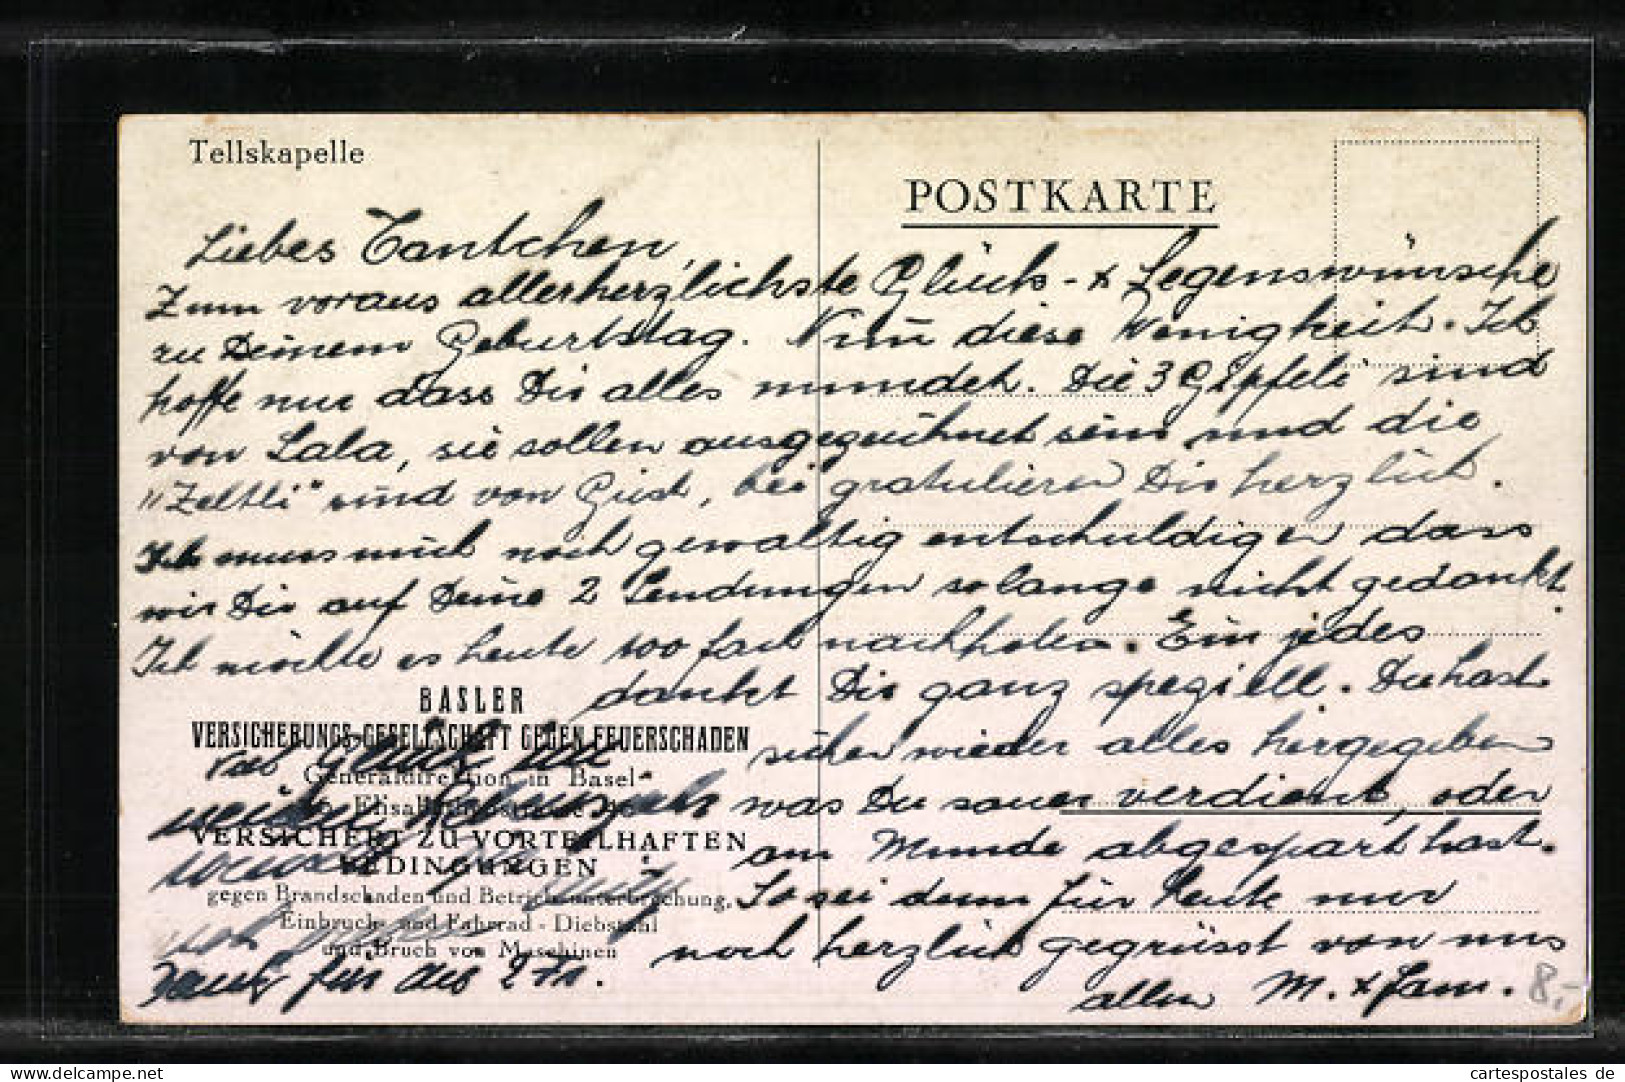 Tellskapelle
POSTKARTE
Liebes Tantchen,
Zum voraus allerherzlichste Glück- & Segenswünsche
zu Deinem Geburtstag. Nim̄ diese Wenigkeit. Ich
hoffe nur dass Dir alles mundet. Die 3 Gipfeli sind
von Lala, sie sollen ausgezeichnet sein und die
"Zeltli" sind von gratulieren Dir herzlich.
Ich muss mich noch gewaltig entschuldigen dass
wir Dir auf Deine 2 Sendungen so lange nicht gedankt.
Ich möchte es heute 100 fach nachholen. Ein jedes
dankt Dir ganz speziell. Du hast
sicher wieder alles hergegeben
was Du sauer verdient, oder
am Munde abgespart hast.
So sei denn für heute nur
noch herzlich gegrüsst von uns
allen M. & Fam.
BASLER
VERSICHERUNGS-GESELLSCHAFT GEGEN FEUERSCHADEN
Generaldirektion in Basel
VERSICHERT ZU VORTEILHAFTEN
BEDINGUNGEN
gegen Brandschaden und Betriebsunterbrechung,
Einbruch- und Fahrrad-Diebstahl
und Bruch von Maschinen
für die
8.-
cartespostales de